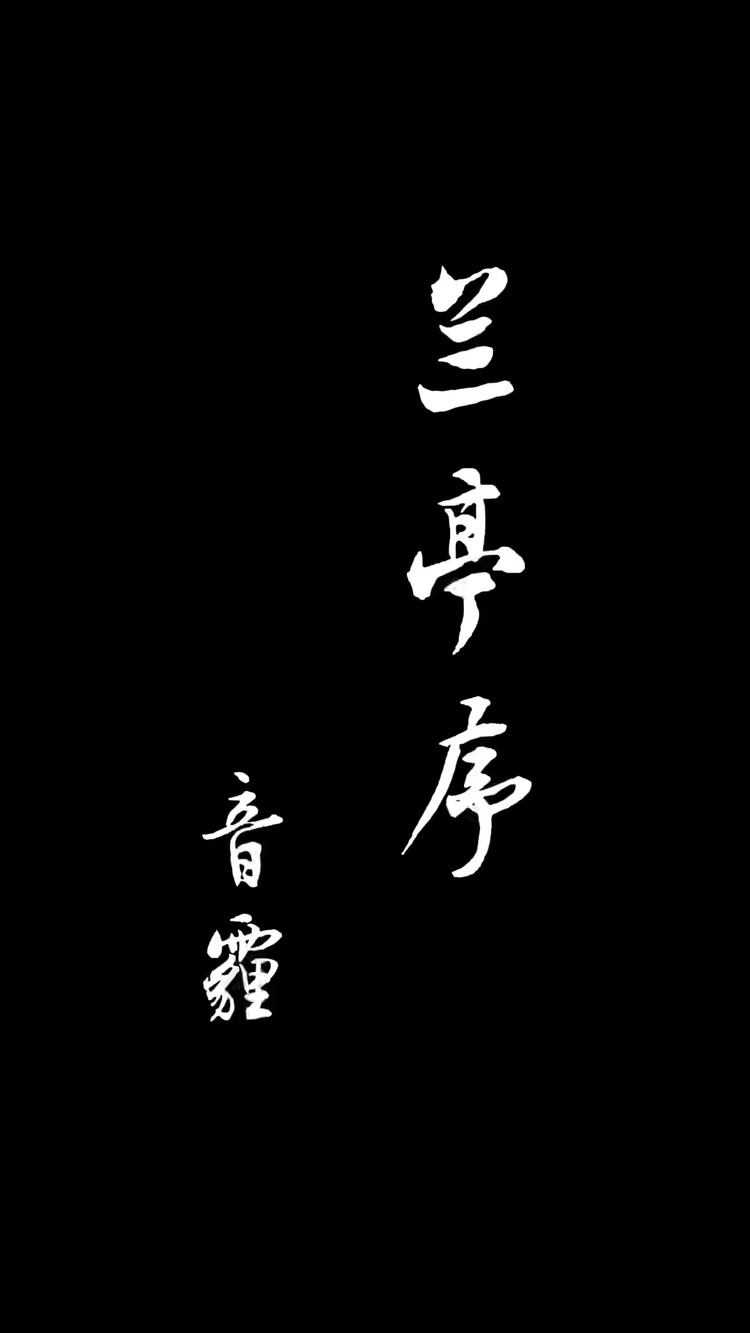 兰亭序
音霾